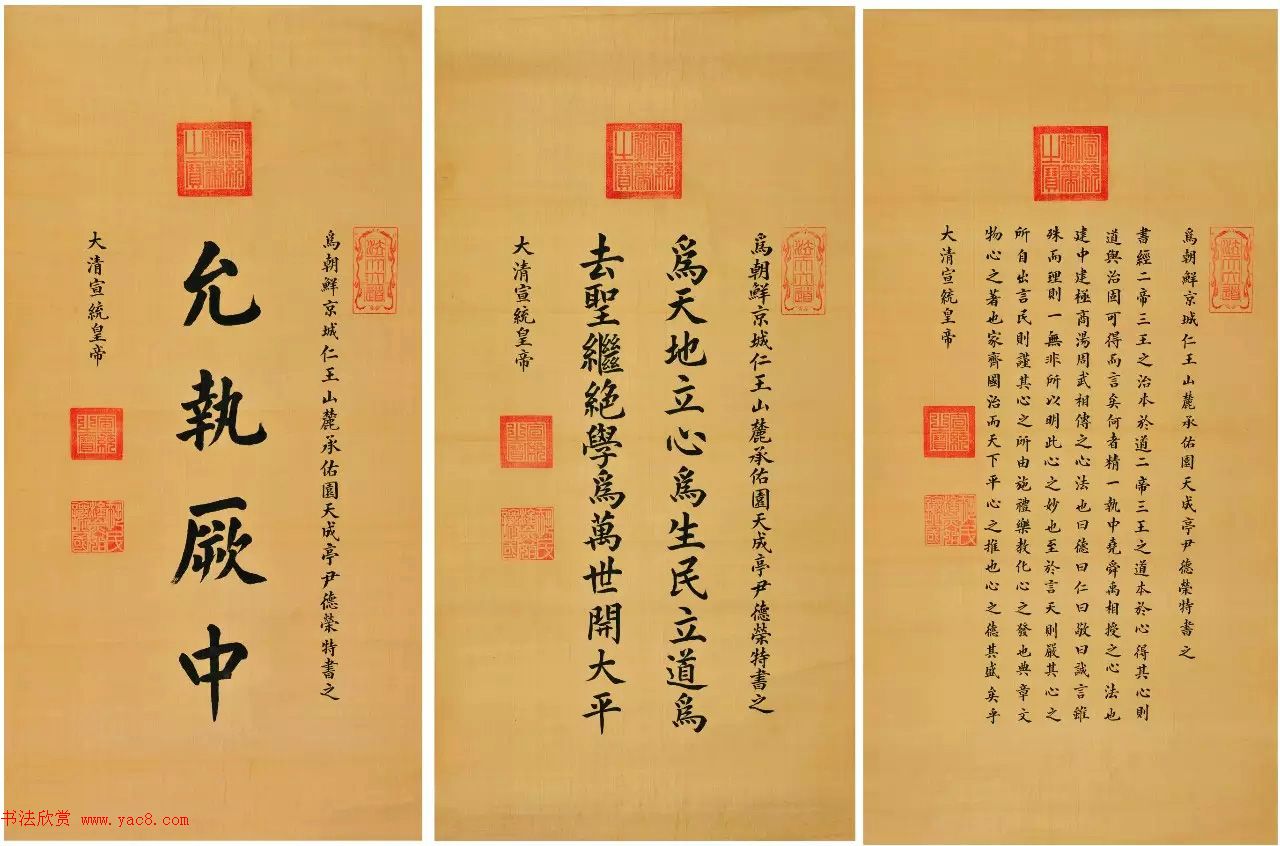 宣統御筆之寶
爲朝鮮京城仁王山麓承佑園天成亭尹德榮特書之
允執厥中
大清宣統皇帝
宣統御筆之寶
爲朝鮮京城仁王山麓承佑園天成亭尹德榮特書之
爲天地立心爲生民立道爲
去聖繼絶學爲萬世開大平
大清宣統皇帝
宣統御筆之寶
爲朝鮮京城仁王山麓承佑園天成亭尹德榮特書之
書經二帝三王之治本於道二帝三王之道本於心得其心則
道與治固可得而言矣何者精一執中堯舜禹相授之心法也
建中建極商湯周武相傳之心法也曰德曰仁曰敬曰誠言雖
殊而理則一無非所以明此心之妙也至於言天則嚴其心之
所自出言民則謹其心之所由施禮樂教化心之發也典章文
物心之著也家齊國治而天下平心之推也心之德其盛矣乎
大清宣統皇帝
书法欣赏 www.yac8.com